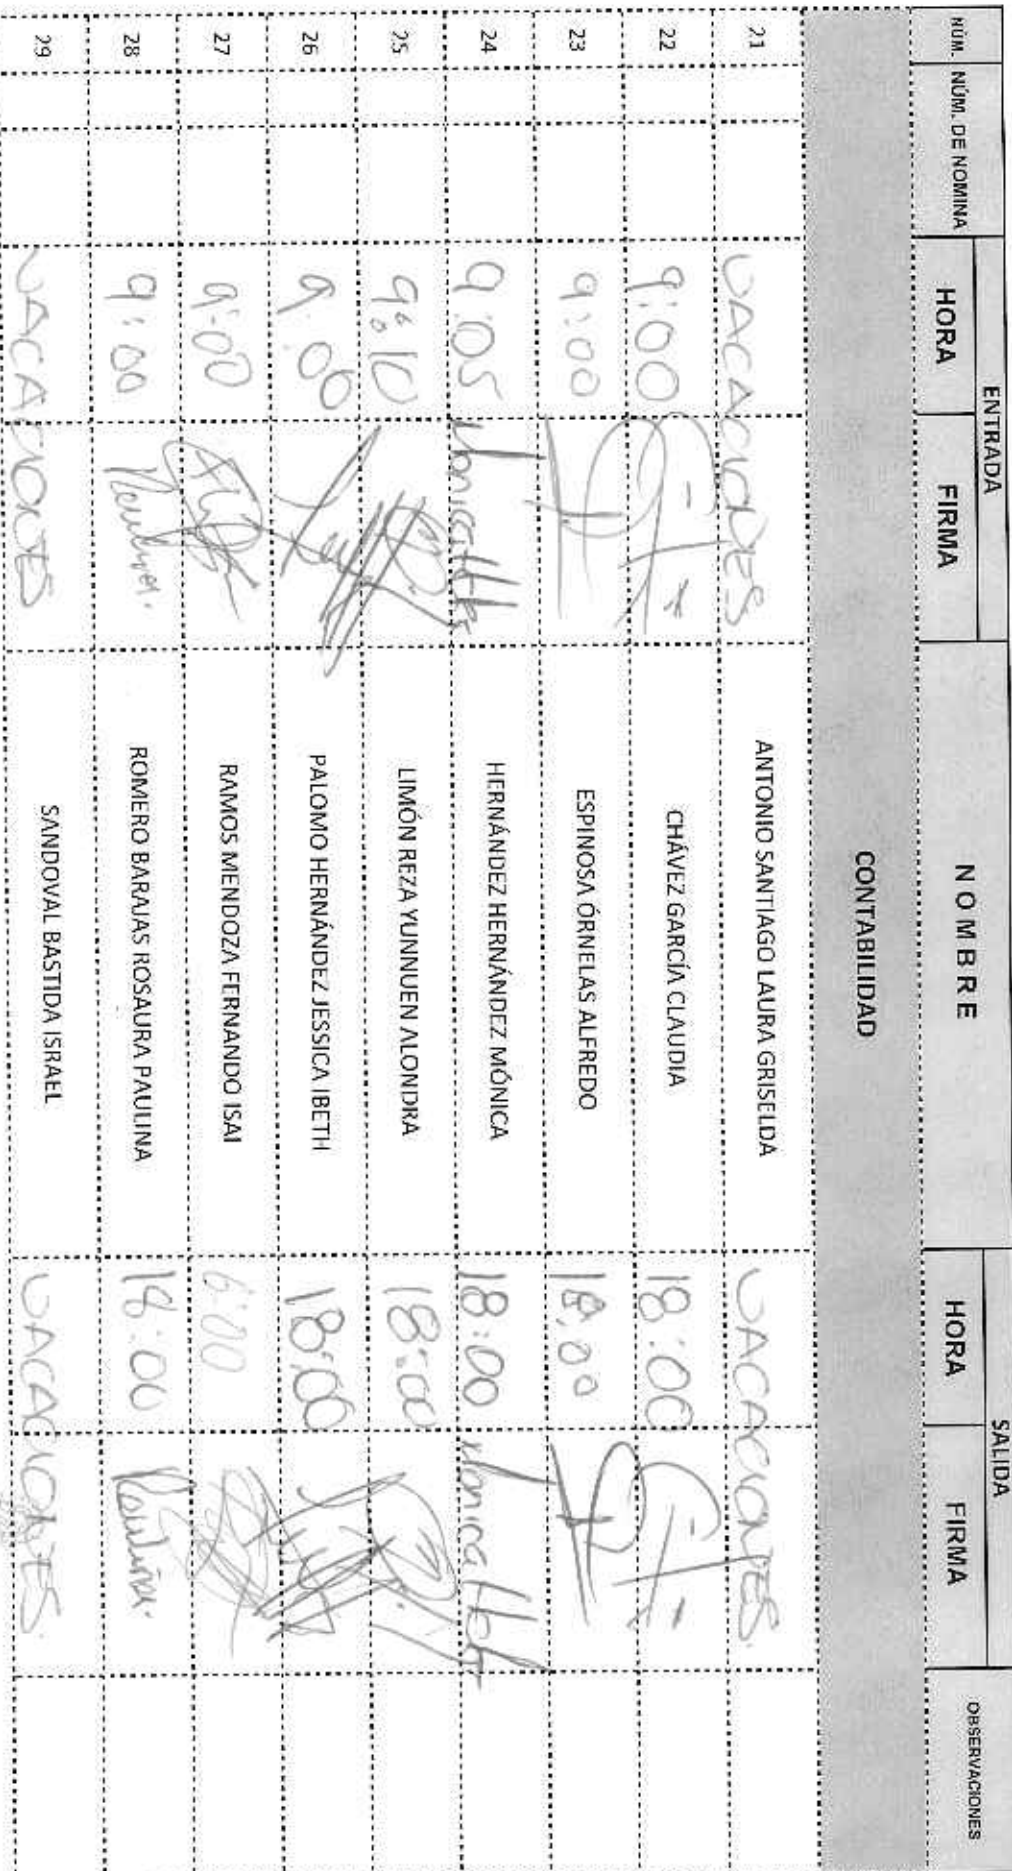 NÚM. NÚM. DE NOMINA ENTRADA NOMBRE SALIDA OBSERVACIONES
HORA FIRMA HORA FIRMA
CONTABILIDAD
21 VACACIONES ANTONIO SANTIAGO LAURA GRISELDA VACACIONES
22 9:00 CHÁVEZ GARCÍA CLAUDIA 18:00
23 9:00 ESPINOSA ÓRNELAS ALFREDO 18:00
24 9:05 Monica HERNÁNDEZ HERNÁNDEZ MÓNICA 18:00 Monica
25 9:10 LIMÓN REZA YUNNUEN ALONDRA 18:00
26 9:00 PALOMO HERNÁNDEZ JESSICA IBETH 18:00
27 9:00 RAMOS MENDOZA FERNANDO ISAI 6:00
28 9:00 ROMERO BARAJAS ROSAURA PAULINA 18:00 Paulina.
29 VACACIONES SANDOVAL BASTIDA ISRAEL VACACIONES